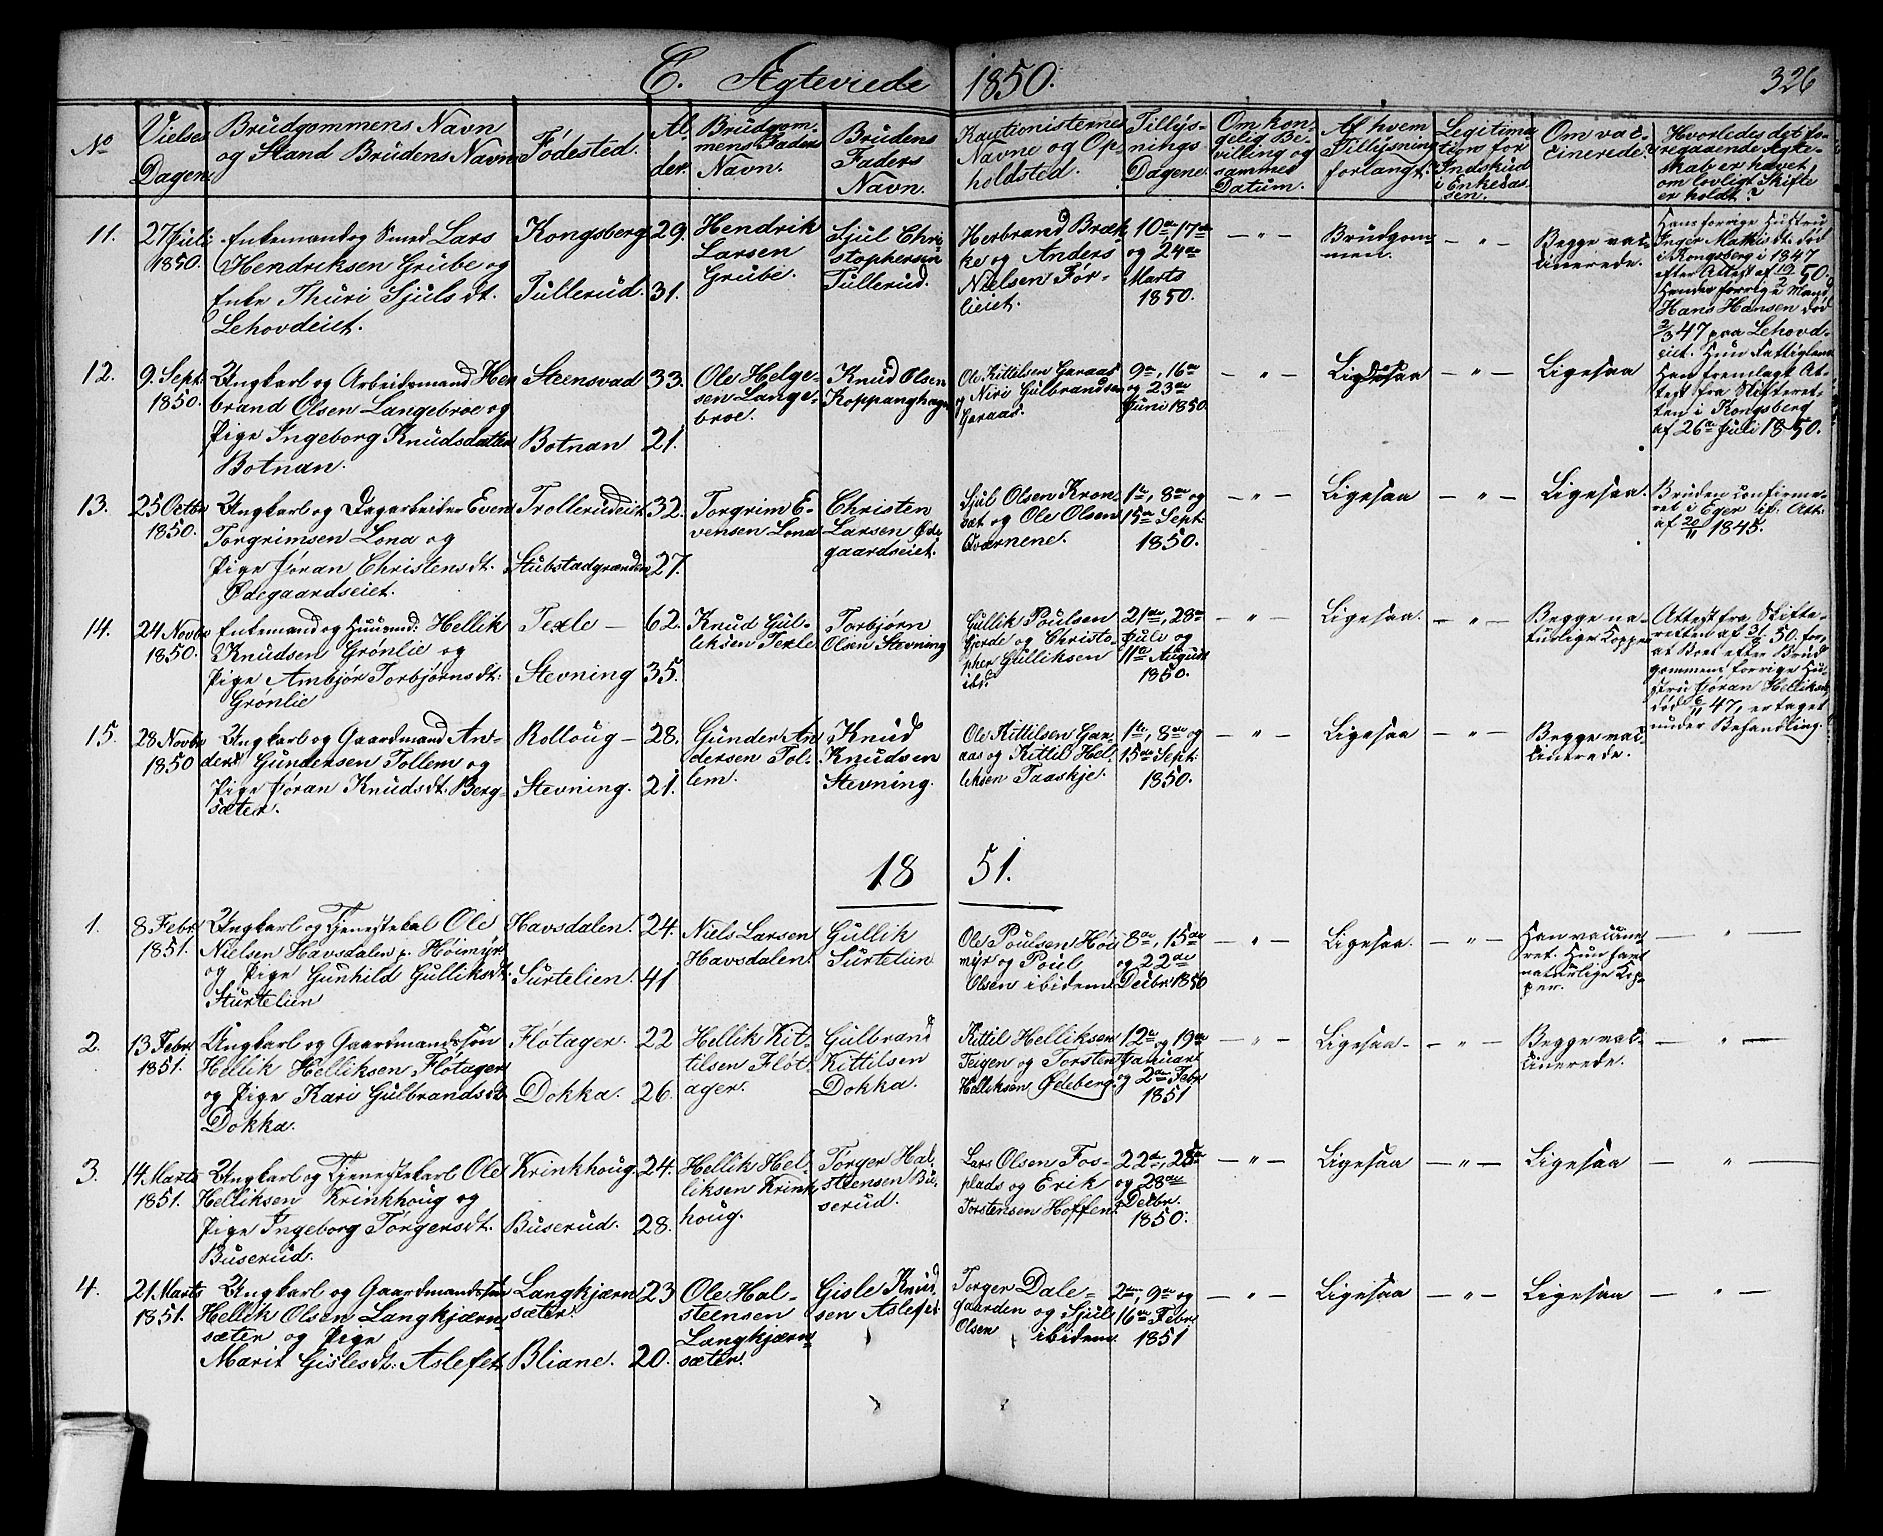 C. Ægteviede 1850. 326
No
Vielses Dagen.
Brudgommens Navn og Stand Brudens Navn
Fødested.
Alder.
Brudgommens Faders Navn.
Brudens Faders Navn.
Kautionisternes Navne og Opholdsted.
Tillysnings Dagene.
Om kongelig Bevilling og sammes Datum.
Af hvem Tillysning forlangt.
Legitimation for Indskud i Enkekassen.
Om vaccinerede.
Hvorledes det foregaaende Ægteskab er hævet, om lovligt Skifte er holdt?
11.
27 Juli
1850.
Enkemand og Smed Lars
Hendriksen Grube og
Enke Thuri Sjulsdt.
Lehovdeiet.
Kongsberg
Tullerud.
29.
31.
Hendrik
Larsen
Grube.
Sjul Chri-
stophersen
Tullerud.
Herbrand Bræk-
ke og Anders
Nielsen Før-
lieiet.
10de, 17de
og 24de
Marts
1850.
— " —
Brudgom-
men.
— " —
Begge vac-
cinerede.
Hans forrige Hustru
Inger Mathisdt. død
i Kongsberg i 1847
efter Attest af 19/2 50.
Hendes forrige Mand
Hans Hansen død
2/3 47 paa Lehovd-
eiet. Hun Fattiglem
Han fremlagt At-
test fra Skifteret-
ten i Kongsberg
af 26de Juli 1850.
12.
9. Sept.
1850.
Ungkarl og Arbeidsmand Hen
brand Olsen Langebroe og
Pige Ingeborg Knudsdatter
Botnan.
Steensvad
Botnan
33.
21.
Ole Helge-
sen Lange-
broe.
Knud Olsen
Koppanghagen
Ole Kittilsen Garaas
og Niri Gulbrandsen
Garaas.
9de, 16de
og 23de
Juni 1850.
— " —
Ligesaa
— " —
Ligesaa
13.
25 Octbr
1850.
Ungkarl og Dagarbeider Even
Torgrimsen Lona og
Pige Jøran Christensdt.
Ødegaardseiet.
Trollerudeiet
Stubstadgrænden
32.
27.
Torgrim E-
vensen Lona
Christen
Larsen Øde
gaardseiet.
Sjul Olsen Kron-
sæt og Ole Olsen
Qværnene.
1ste, 8de og
15de Sept.
1850.
— " —
Ligesaa
— " —
Ligesaa.
Bruden confirme-
ret i Eger if. Att.
af 20/11 1845.
14.
24 Novbr
1850.
Enkemand og Huusmd: Hellik
Knudsen Grønlie og
Pige Ambjør Torbjørnsdt:
Grønlie
Texle —
Stevning
62.
35.
Knud Gul-
liksen Texle
Torbjørn
Olsen Stevning
Gullik Poulsen
Gjerde og Christo-
pher Gulliksen
ibd.
21de, 28de
Juli og
11te August
1850.
— " —
Ligesaa.
— " —
Begge na-
turlige Kopper
Attest fra Skifte-
retten af 31/7 50. for,
at Boet efter Brud
gommens forrige Hu-
stru Jøran Helliksdt
død 6/11 47, er taget
under Behandling.
15.
28 Novbr
1850
Ungkarl og Gaardmand An-
ders Gundersen Tollem og
Pige Jøran Knudsdt. Berg-
sæter.
Rolloug —
Stevning.
28.
21.
Gunder An
dersen Tol-
lem.
Knud
Knudsen
Stevning.
Ole Kittilsen Gar-
aas og Kittil Hel-
liksen Taaskje.
1ste, 8de og
15de Sept:
1850.
— " —
Ligesaa
— " —
Begge vac-
cinerede.
1851.
1.
8 Febr.
1851.
Ungkarl og Tjenestekal Ole
Nielsen Havsdalen p. Høimyr
og Pige Gunhild Gulliksdt.
Sturtelien
Havsdalen.
Surtelien.
24.
41
Niels Larsen
Havsdalen.
Gullik
Surtelien
Ole Poulsen Høi
myr og Poul
Olsen ibidem
8de, 15de
og 22de
Decbr. 1850
— " —
Ligesaa.
— " —
Han vaccine-
ret. Hun havt
naturlige Kop-
per.
— " —
2.
13 Febr.
1851.
Ungkarl og Gaardmandssøn
Hellik Helliksen Fløtager
og Pige Kari Gulbrandsdt.
Dokka.
Fløtager.
Dokka.
22
26.
Hellik Kit-
tilsen Fløt-
ager.
Gulbrand
Kittilsen
Dokka.
Kittil Helliksen
Teigen og Torsten
Helliksen Ødeberg.
12te og 19de
Januari
og 2den Febr
1851
— " —
Ligesaa —
— " —
Begge vac-
cinerede.
— " —
3.
14 Marts
1851.
Ungkarl og Tjenestekarl Ole
Helliksen Krinkhoug og
Pige Ingeborg Torgersdt.
Buserud.
Krinkhoug.
Buserud.
24.
28.
Hellik Hel-
liksen Krink
houg.
Torger Hal-
steensen Bu-
serud.
Lars Olsen Fos-
plads og Erik
Torstensen Hoffen.
22de, 25de
og 28de
Decbr.
1850.
— " —
Ligesaa
— " —
Ligesaa
— " —
4.
21. Marts
1851.
Ungkarl og Gaardmandssøn
Hellik Olsen Langkjærn-
sæter og Pige
Marit Gislesdt: Aslefet.
Langkjærn
sæter.
Bliane.
23
20.
Ole Hal-
steensen
Langkjærn-
sæter.
Gisle Knud-
sen Aslefet
Torger Dale-
gaarden og Sjul
Olsen ibidem
2den, 9de og
16de Febr.
1851
— " —
Ligesaa
— " —
Ligesaa
— " —